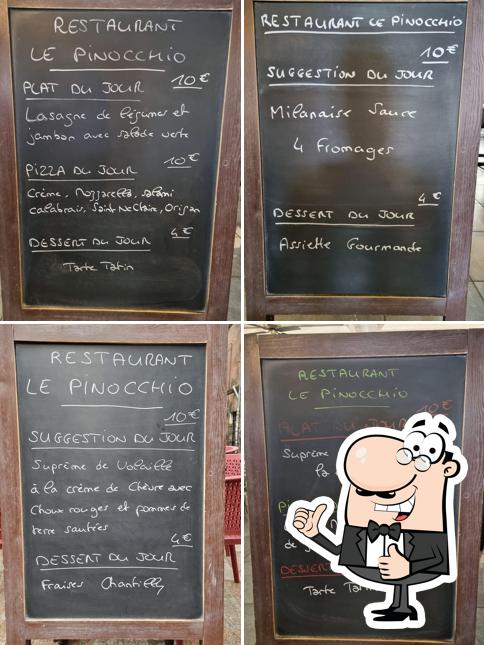 RESTAURANT
LE PINOCCHIO
PLAT DU JOUR 10€
Lasagne de légumes et
jambon avec salade verte
PIZZA DU JOUR 10€
Crème, Mozzarella, salami
calabrais, Saint Nectaire, Origan
DESSERT DU JOUR 4€
Tarte Tatin
RESTAURANT LE PINOCCHIO
10€
SUGGESTION DU JOUR
Milanaise Sauce
4 Fromages
4€
DESSERT DU JOUR
Assiette Gourmande
RESTAURANT
LE PINOCCHIO
10€
SUGGESTION DU JOUR
Suprême de Volaille
à la crème de Chèvre avec
Choux rouges et pommes de
terre sautées
4€
DESSERT DU JOUR
Fraises Chantilly
RESTAURANT
LE PINOCCHIO
PLAT DU JOUR 10€
Suprême
la
de
DESSERT
Tarte Tatin